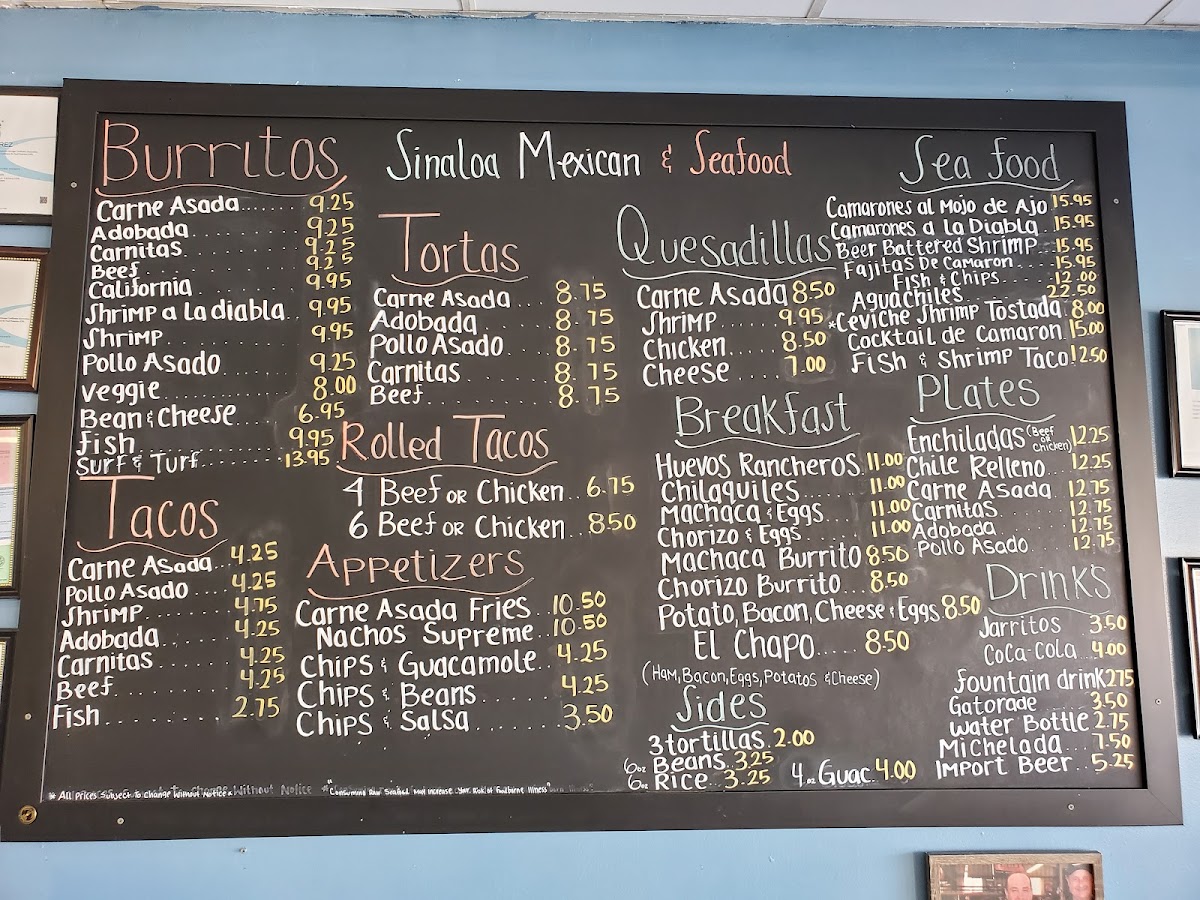 Sinaloa Mexican & Seafood
Burritos
Carne Asada....... 9.25
Adobada......... 9.25
Carnitas........ 9.25
Beef........ 9.25
California........ 9.95
Shrimp a la diabla.. 9.95
Shrimp......... 9.95
Pollo Asado....... 9.25
Veggie......... 8.00
Bean & Cheese..... 6.95
Fish......... 9.95
Surf & Turf........ 13.95
Tacos
Carne Asada.. 4.25
Pollo Asado.... 4.25
Shrimp....... 4.75
Adobada...... 4.25
Carnitas...... 4.25
Beef......... 4.25
Fish.......... 2.75
Tortas
Carne Asada.... 8.75
Adobada...... 8.75
Pollo Asado.... 8.75
Carnitas...... 8.75
Beef........ 8.75
Rolled Tacos
4 Beef or Chicken.. 6.75
6 Beef or Chicken.. 8.50
Appetizers
Carne Asada Fries.. 10.50
Nachos Supreme.. 10.50
Chips & Guacamole.. 4.25
Chips & Beans..... 4.25
Chips & Salsa...... 3.50
Quesadillas
Carne Asada 8.50
Shrimp...... 9.95
Chicken..... 8.50
Cheese..... 7.00
Breakfast
Huevos Rancheros.11.00
Chilaquiles....... 11.00
Machaca & Eggs.... 11.00
Chorizo & Eggs..... 11.00
Machaca Burrito 8.50
Chorizo Burrito... 8.50
Potato, Bacon, Cheese & Eggs. 8.50
El Chapo..... 8.50
(Ham, Bacon, Eggs, Potatos & Cheese)
Sides
3 tortillas. 2.00
6oz Beans.. 3.25
6oz Rice.. 3.25
4oz Guac. 4.00
Sea food
Camarones al Mojo de Ajo 15.95
Camarones a la Diabla. 15.95
Beer Battered Shrimp.. 15.95
Fajitas De Camaron.... 15.95
Fish & Chips.... 12.00
Aguachiles........ 22.50
*Ceviche Shrimp Tostada. 8.00
Cocktail de Camaron 15.00
Fish & Shrimp Taco. 12.50
Plates
Enchiladas (Beef or Chicken) 12.25
Chile Relleno... 12.25
Carne Asada.. 12.75
Carnitas...... 12.75
Adobada....... 12.75
Pollo Asado.... 12.75
Drinks
Jarritos... 3.50
Coca-Cola.. 4.00
fountain drink 2.75
Gatorade..... 3.50
Water Bottle 2.75
Michelada... 7.50
Import Beer.. 5.25
* All Prices Subject To Change Without Notice